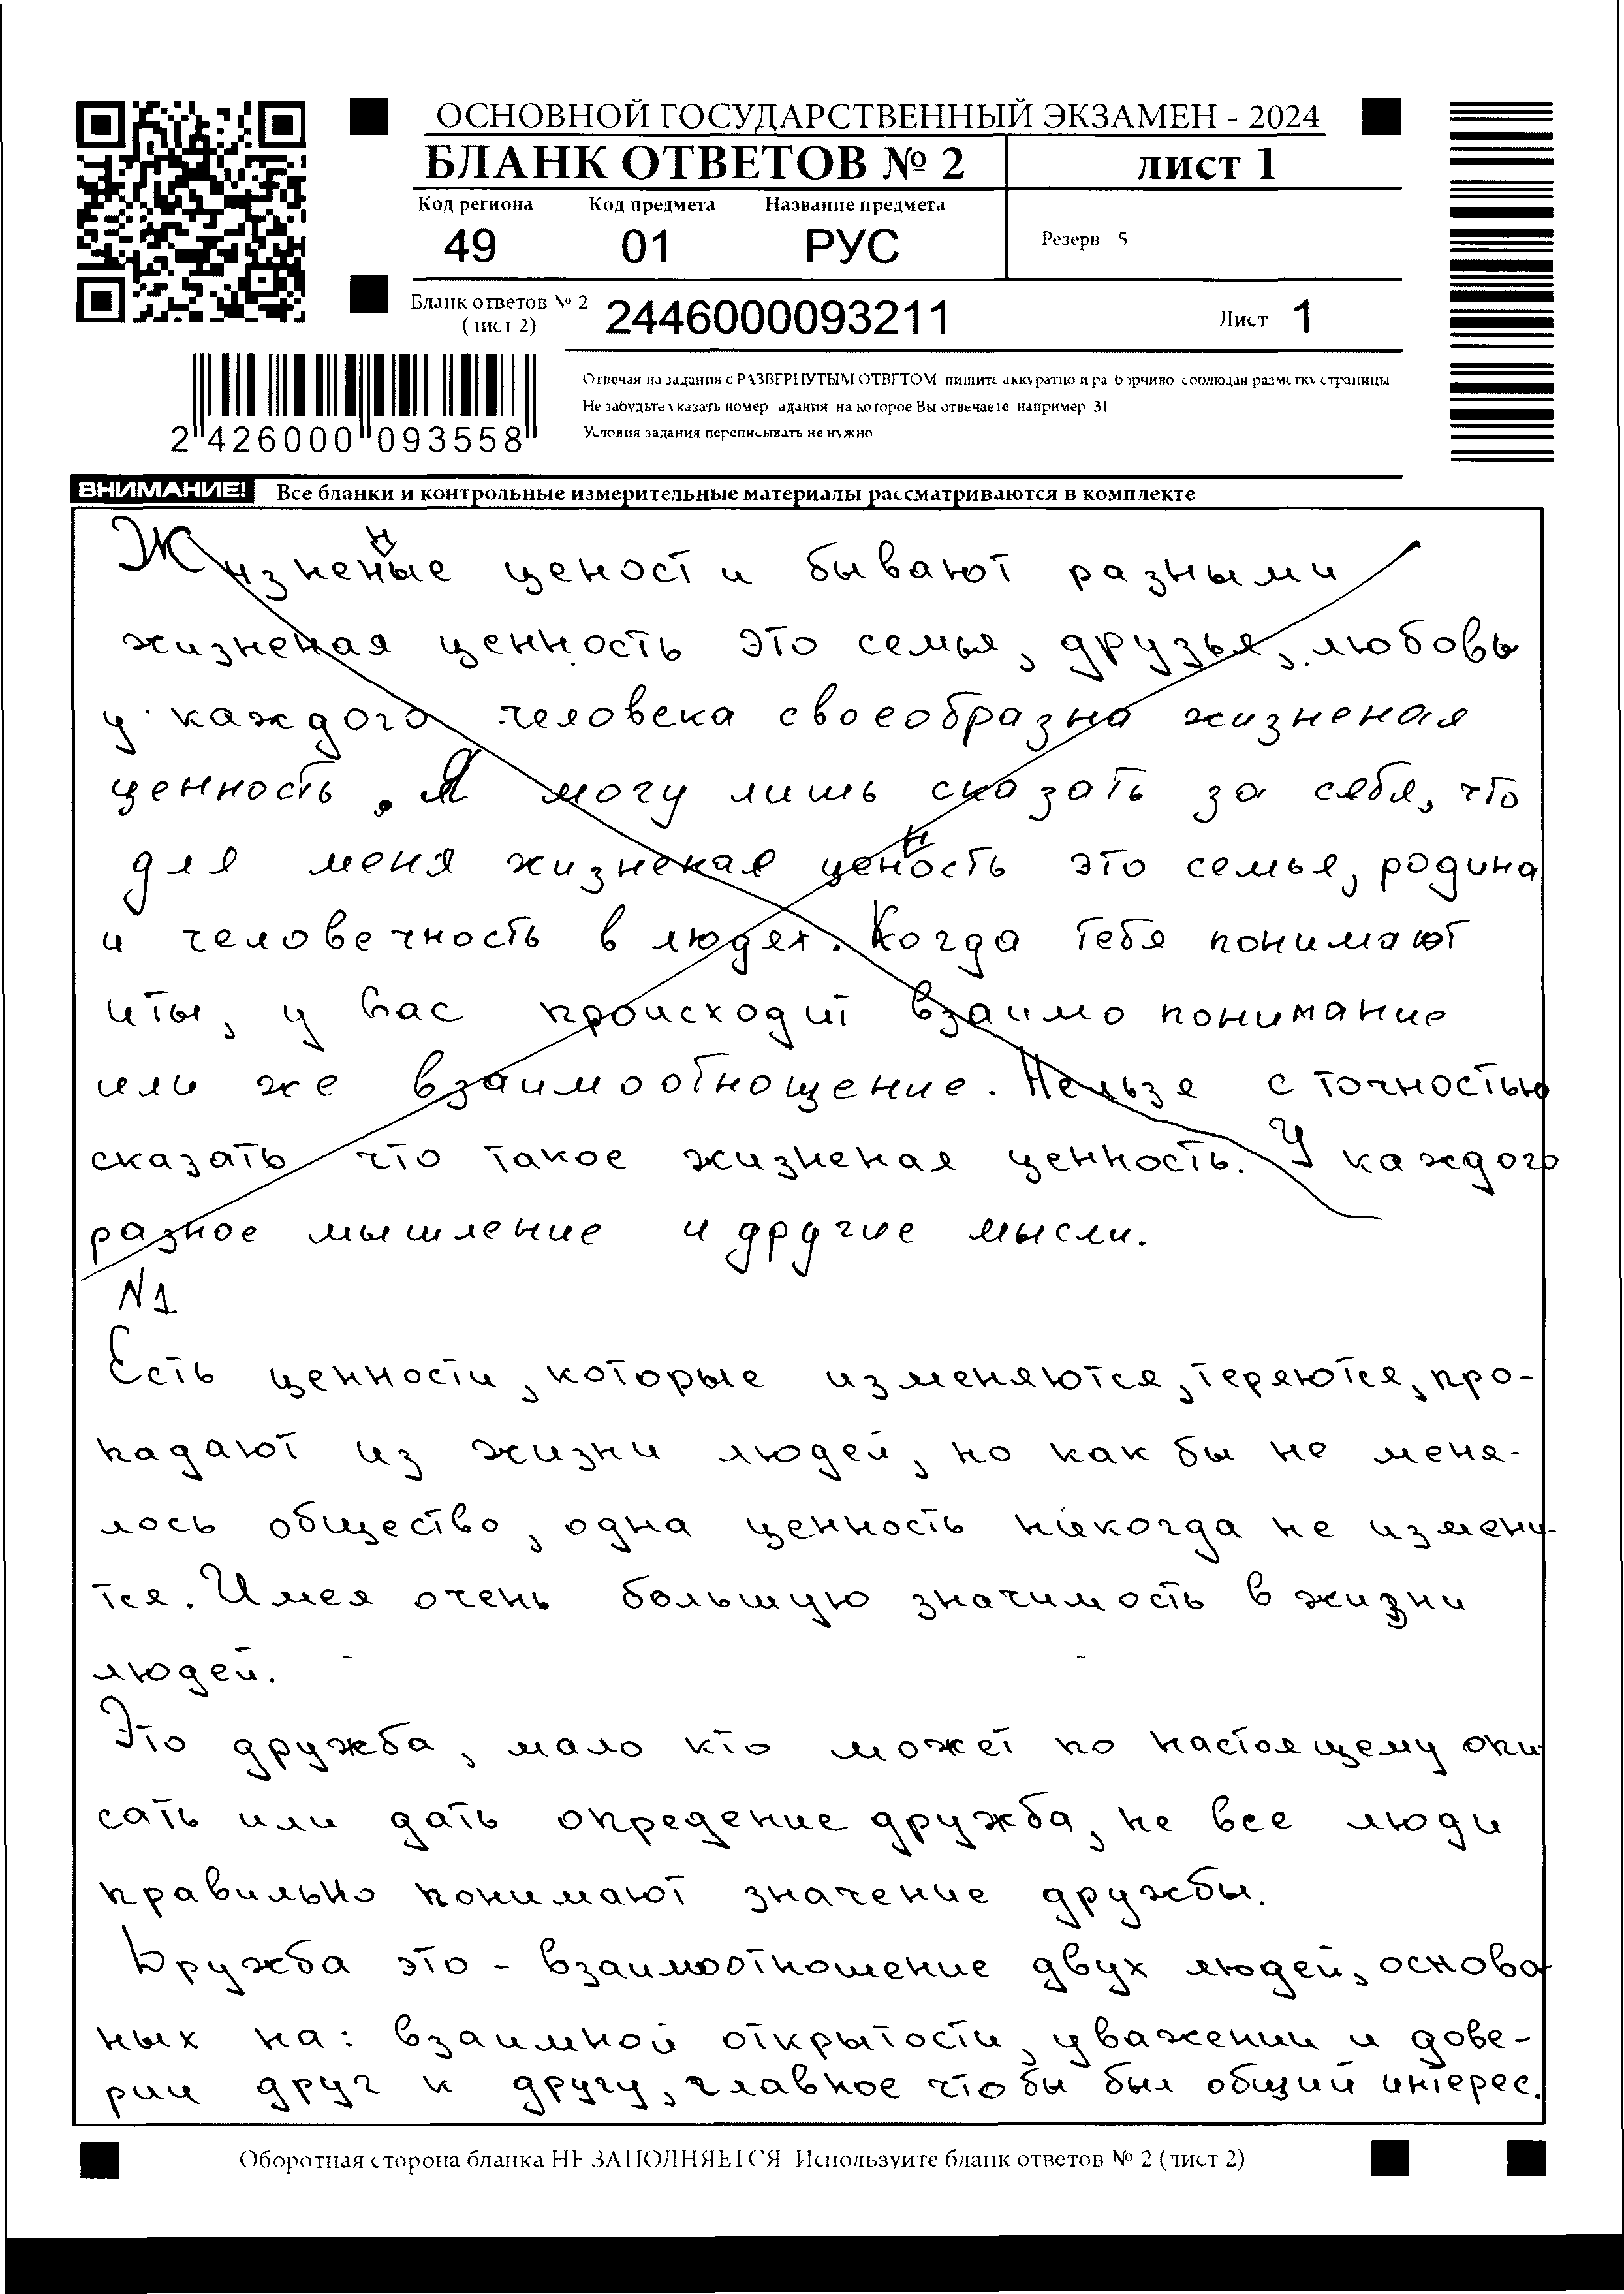 ОСНОВНОЙ ГОСУДАРСТВЕННЫЙ ЭКЗАМЕН - 2024
БЛАНК ОТВЕТОВ № 2 лист 1
Код региона Код предмета Название предмета
49 01 РУС
Резерв 5
Бланк ответов № 2
(лист 2)
2446000093211
Лист 1
2 426000 093558
Отвечая на задания с РАЗВЕРНУТЫМ ОТВЕТОМ пишите аккуратно и разборчиво соблюдая разметку страницы
Не забудьте указать номер задания на которое Вы отвечаете например 31
Условия задания переписывать не нужно
ВНИМАНИЕ! Все бланки и контрольные измерительные материалы рассматриваются в комплекте
Жизненные цености бывают разными
жизненая ценность это семья, друзья, любовь
у каждого человека своеобразна жизненая
ценность. Я могу лишь сказать за себя, что
для меня жизненая ценность это семья, родина
и человечность в людях. Когда тебя понимают
и ты, у вас происходит взаимо понимание
или же взаимоотнощение. Нельзя с точностью
сказать что такое жизненая ценность. У каждого
разное мышление и другие мысли.
N1
Есть ценности, которые изменяются, теряются, про-
падают из жизни людей, но как бы не меня-
лось общество, одна ценность никогда не измени-
тся. Имея очень большую значимость в жизни
людей.
Это дружба, мало кто может по настоящему опи
сать или дать опредение дружба, не все люди
правильно понимают значение дружбы.
Дружба это - взаимоотношение двух людей, основа
ных на: взаимной открытости, уважении и дове-
рии друг к другу, главное чтобы был общий интерес.
Оборотная сторона бланка НЕ ЗАПОЛНЯЕТСЯ Используйте бланк ответов № 2 (лист 2)